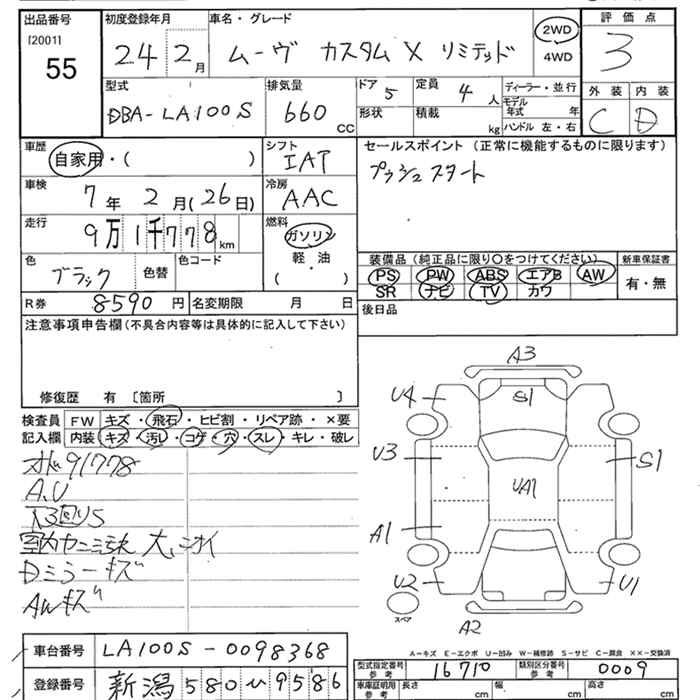 出品番号 初度登録年月 車名・グレード 評価点
[2001] 55 24 2月 ムーヴ カスタム X リミテッド 2WD 4WD 3
型式 排気量 ドア 5 定員 4人 ディーラー・並行 外装 内装
DBA-LA100S 660 CC 形状 積載 kg モデル年式 年 ハンドル 左・右 C D
車歴 シフト セールスポイント (正常に機能するものに限ります)
自家用・( ) IAT プッシュスタート
車検 7年 2月(26日) 冷房 AAC
走行 9万1千778km 燃料 ガソリン 軽・油 ( )
装備品 (純正品に限り○をつけてください) 新車保証書
色 ブラック 色替 色コード PS PW ABS エアB AW 有・無
SR ナビ TV カワ
R券 8590円 名変期限 月 日 後日品
注意事項申告欄 (不具合内容等は具体的に記入して下さい)
修復歴 有 [箇所 ]
検査員 FW キズ・飛石・ヒビ割・リペア跡・×要
記入欄 内装 キズ・汚レ・コゲ・穴・スレ・キレ・破レ
91778
A.U
大、ニオイ
Dミラーキズ
AWキズ
A3
U4 S1
U3 S1
UA1
A1
U2 U1
スペア
A2
A-キズ E-エクボ U-凹み W-補修跡 S-サビ C-腐食 XX-交換済
車台番号 LA100S-0098368
型式指定番号 参考 16710 類別区分番号 参考 0009
登録番号 新潟 580 い 9586
車庫証明用 参考 長さ cm 幅 cm 高さ cm